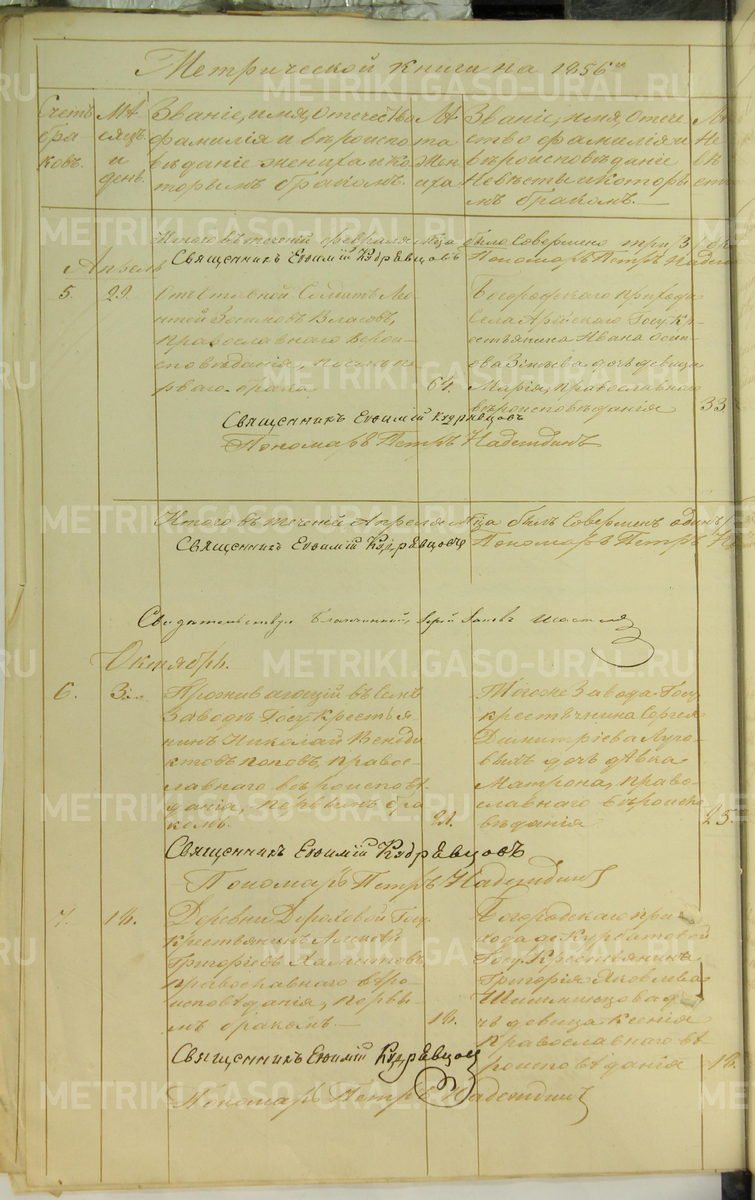 Метрической книги на 1856й
Счетъ
бра
ковъ.
Мѣ
сяцъ
и
день.
Званіе, имя, отечество
фамилія и вѣроиспо
вѣданіе жениха и ко
торымъ бракомъ.
Лѣ
та
жен
иха
Званіе, имя, отече
ство фамилія и
вѣроисповѣданіе
Невѣсты и которы
мъ бракомъ.
Лѣ
Не
вѣ
Итого въ теченій февраля м-ца было Совершено три/3
Священникъ Евѳимій Кудрявцовъ Пономарь Петръ
Апрель
5.
29.
Солдатъ
Власовъ,
православнаго вѣрои-
сповѣданія, послѣ пе
рваго брака
64.
Богородскаго прихода
Села Госу. Кр-
естьянина Ивана Осип
ова дочь девица
Марія, православнаго
вѣроисповѣданія
33.
Священникъ Евѳимій Кудрявцовъ
Пономарь Петръ Надеждинъ
Итого въ теченій Апреля м-ца былъ Совершенъ одинъ
Священникъ Евѳимій Кудрявцовъ Пономарь Петръ
Свидетельствую Благочинный, Іерей
Октябрь.
6.
3.
Проживающій въ Семъ
Заводѣ Госу. Крестья
нинъ Николай Венеди
ктовъ Поповъ, правос-
лавнаго вѣроисповѣ
данія, первымъ бра
комъ.
21.
Тогоже Завода Госу.
крестьянина Сергея
Димитріева Луго
выхъ дочь дѣвка
Матрона, право-
славнаго вѣроиспо
вѣданія
25.
Священникъ Евѳимій Кудрявцовъ
Пономарь Петръ Надеждинъ
7.
18.
Деревни Госу.
крестьянинъ Алексѣй
Григорьевъ
православнаго вѣро-
исповѣданія, первы-
мъ бракомъ.
18.
Богородскаго при
хода де. Курбатовой
Госу. Крестьянина
Григорія Яковлева
до-
чь девица Ксенія
Православнаго вѣ
роисповѣданія
18.
Священникъ Евѳимій Кудрявцовъ
Пономарь Петръ Надеждинъ
METRIKI.GASO-URAL.RU